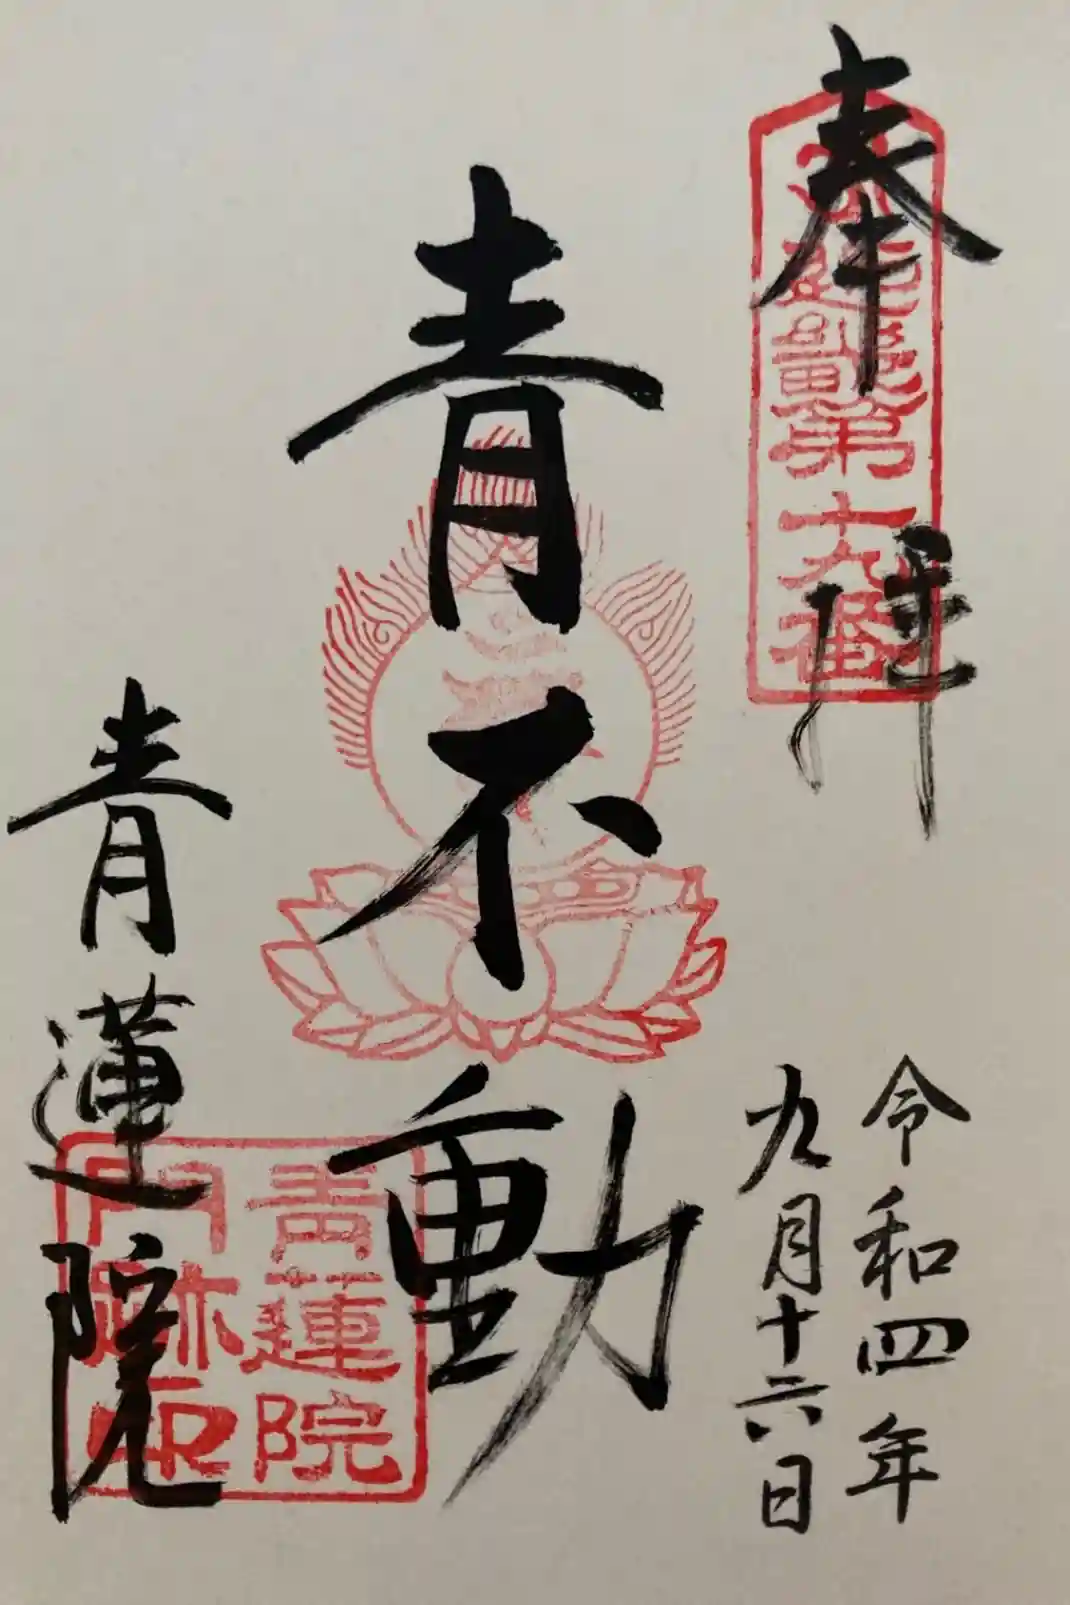 奉拝
第十九番
令和四年
九月十六日
青不動
青蓮院
青蓮院
門跡印